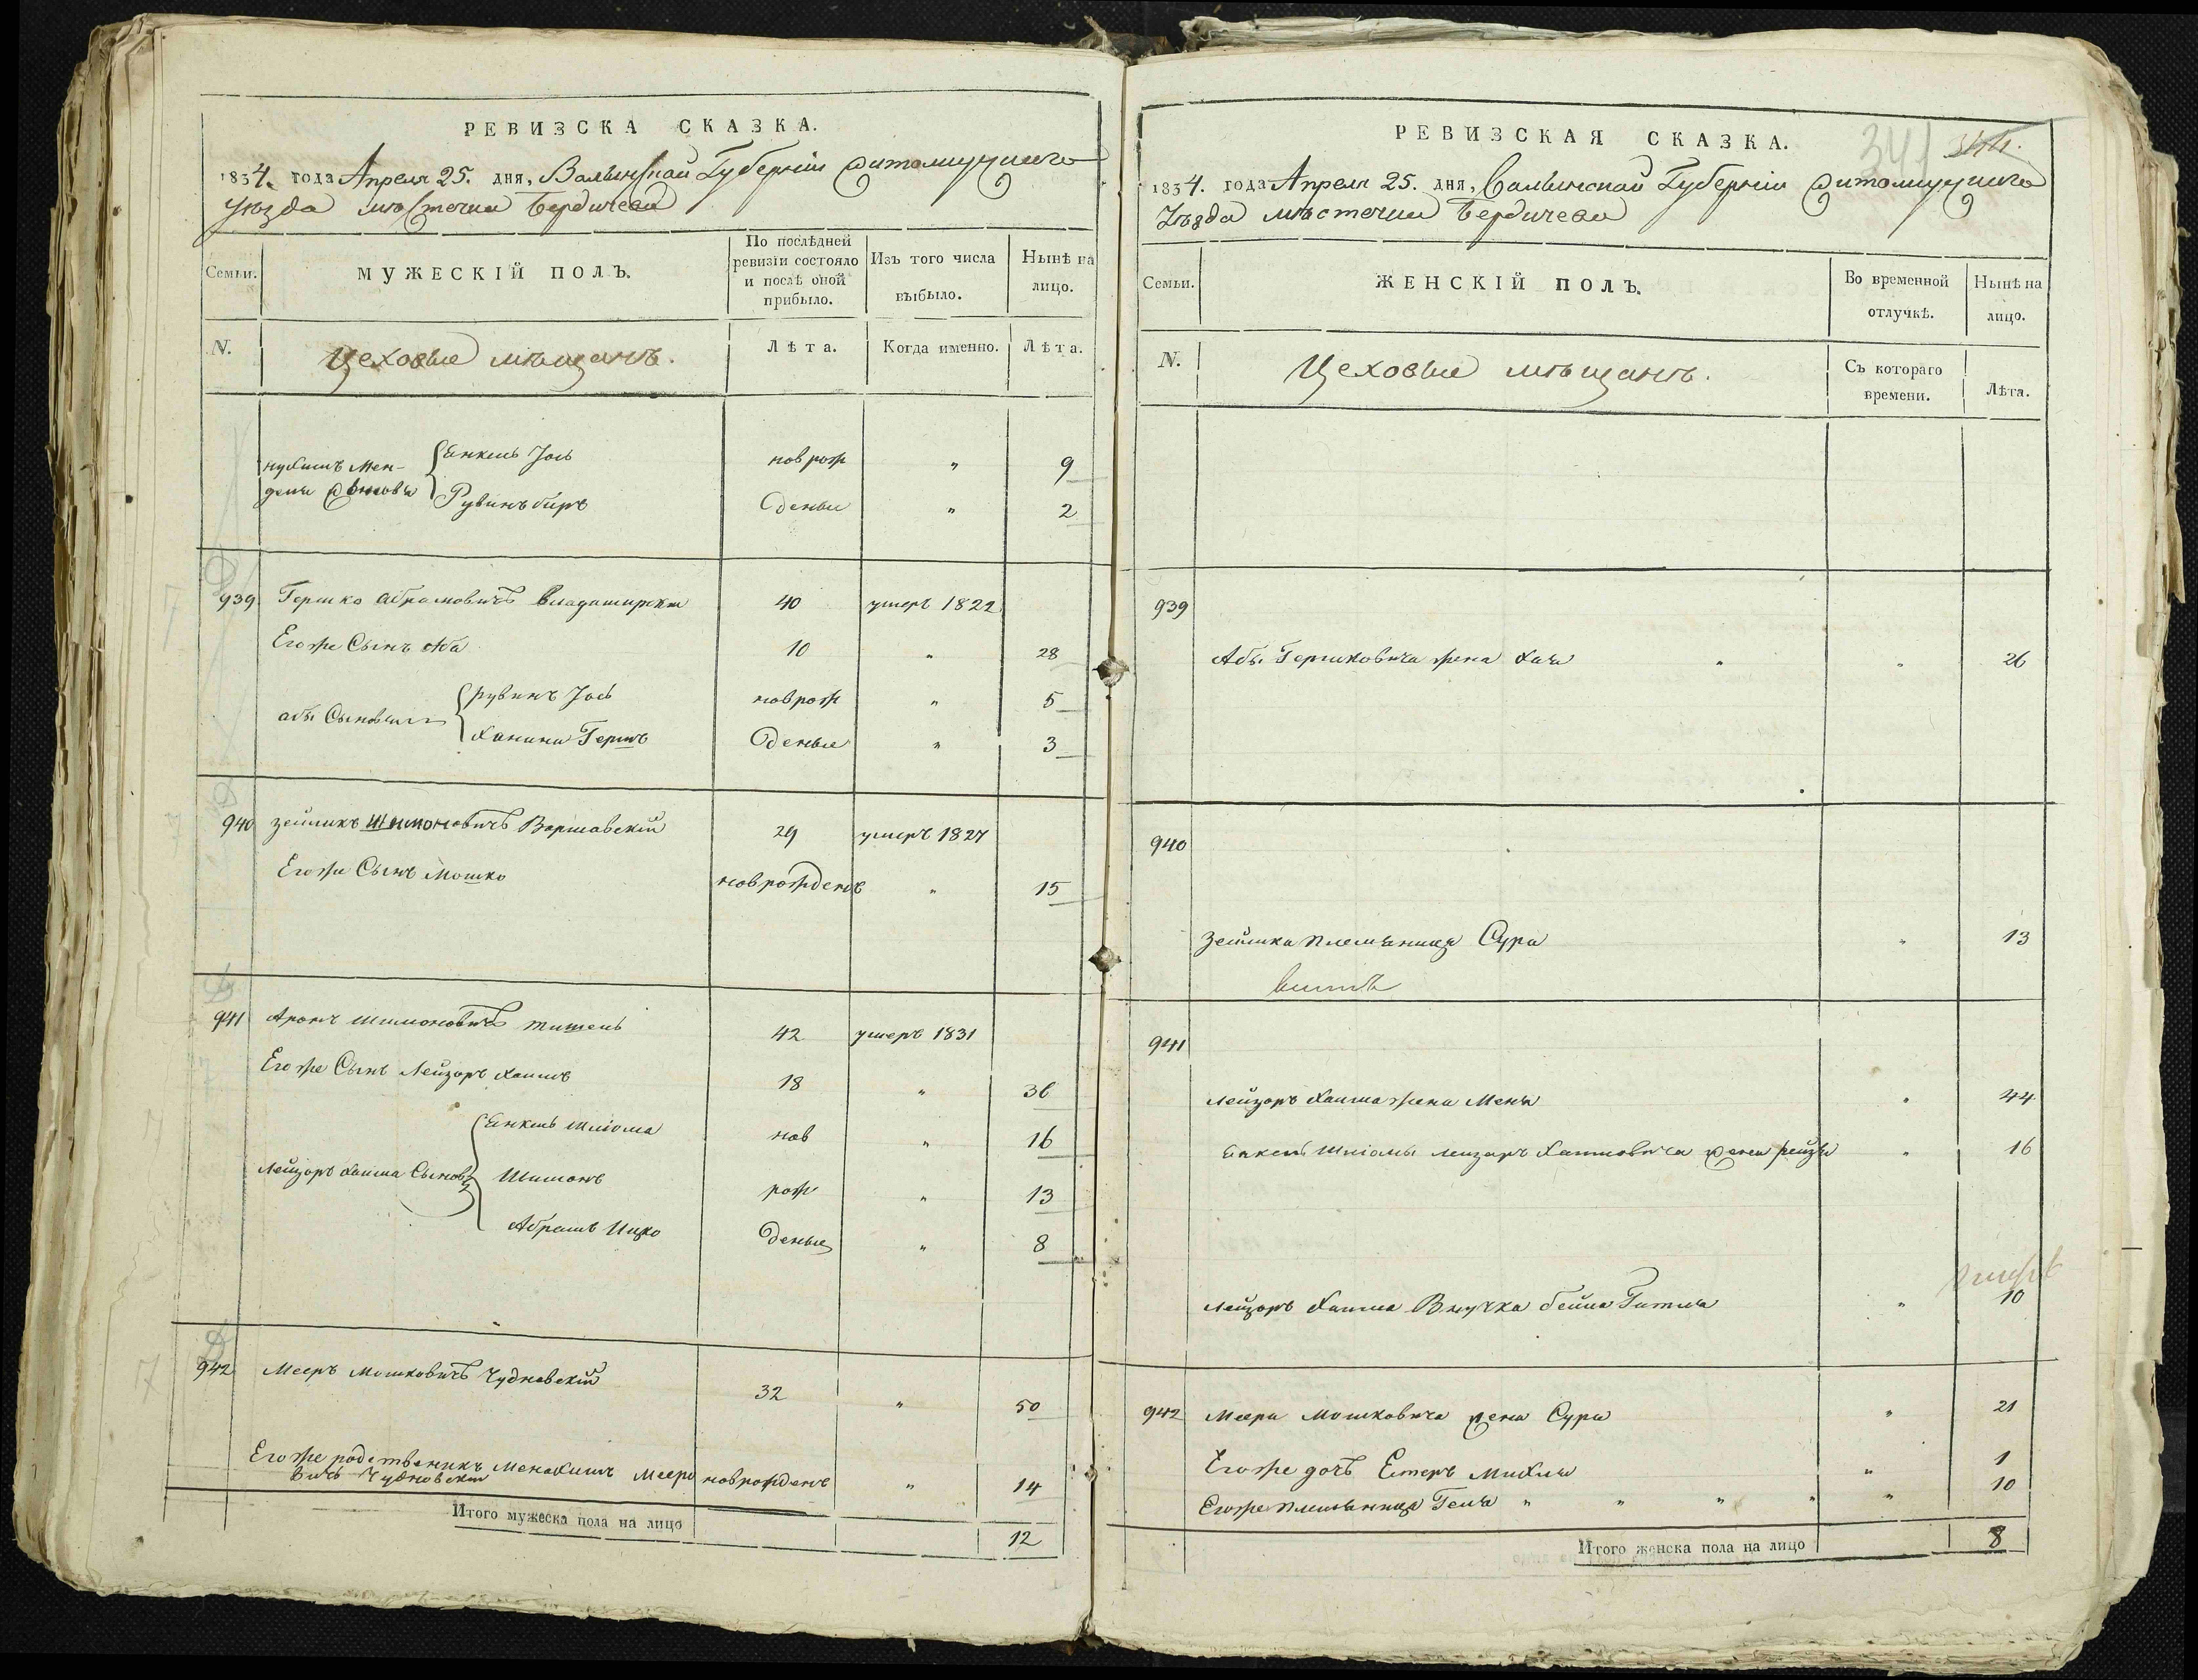 РЕВИЗСКА СКАЗКА.
1834. года Апреля 25. дня, Волынской Губерніи Житомирскаго
Уѣзда мѣстечка Бердичева
Семьи.
МУЖЕСКІЙ ПОЛЪ.
По послѣдней ревизіи состояло и послѣ оной прибыло.
Изъ того числа выбыло.
Нынѣ на лицо.
N.
Цеховые мѣщанѣ.
Лѣта.
Когда именно.
Лѣта.
Нухимъ Мен-
деля сыновья
Янкель Іось
новрож
„
9
Рувинъ беръ
деные
„
2
939
Гершко Абрамовичъ Владимирскій
40
умеръ 1822
Егоже Сынъ Аба
10
„
28
абы Сыновья
Рувинъ Іось
новрож
„
5
Ханина Гершъ
деные
„
3
940
Зейликъ Шимоновичъ Варшавскій
29
умеръ 1827
Егоже Сынъ Мошко
новрожденъ
„
15
941
Аронъ Шимоновичъ Тишель
42
умеръ 1831
Егоже Сынъ Лейзоръ Хаимъ
18
„
36
Лейзоръ Хаима Сыновья
Янкель Шліома
нов
„
16
Шимонъ
рож
„
13
Абрамъ Ицко
деные
„
8
942
Мееръ Мошковичъ Чудновскій
32
„
50
Егоже родственикъ Менахимъ Мееро
вичъ Чудновскій
новрожденъ
„
14
Итого мужеска пола на лицо
12
РЕВИЗСКАЯ СКАЗКА.
341
1834. года Апреля 25. дня, Волынской Губерніи Житомирскаго
Уѣзда мѣстечка Бердичева
Семьи.
ЖЕНСКІЙ ПОЛЪ.
Во временной отлучкѣ.
Нынѣ на лицо.
N.
Цеховые мѣщанѣ.
Съ котораго времени.
Лѣта.
939
Абы Гершковича жена Хая
„
„
26
940
Зейлика племяница Сура
„
13
941
Лейзоръ Хаима жена Меня
„
44
Янкель Шліомы Лейзоръ Хаимовича жена Рейзя
„
16
Лейзоръ Хаима Внучка бейла Гитля
„
10
942
Меера Мошковича жена Сура
„
21
Егоже дочь Естеръ Михля
„
1
Егоже племяница Геня
„
„
„
„
„
10
Итого женска пола на лицо
8